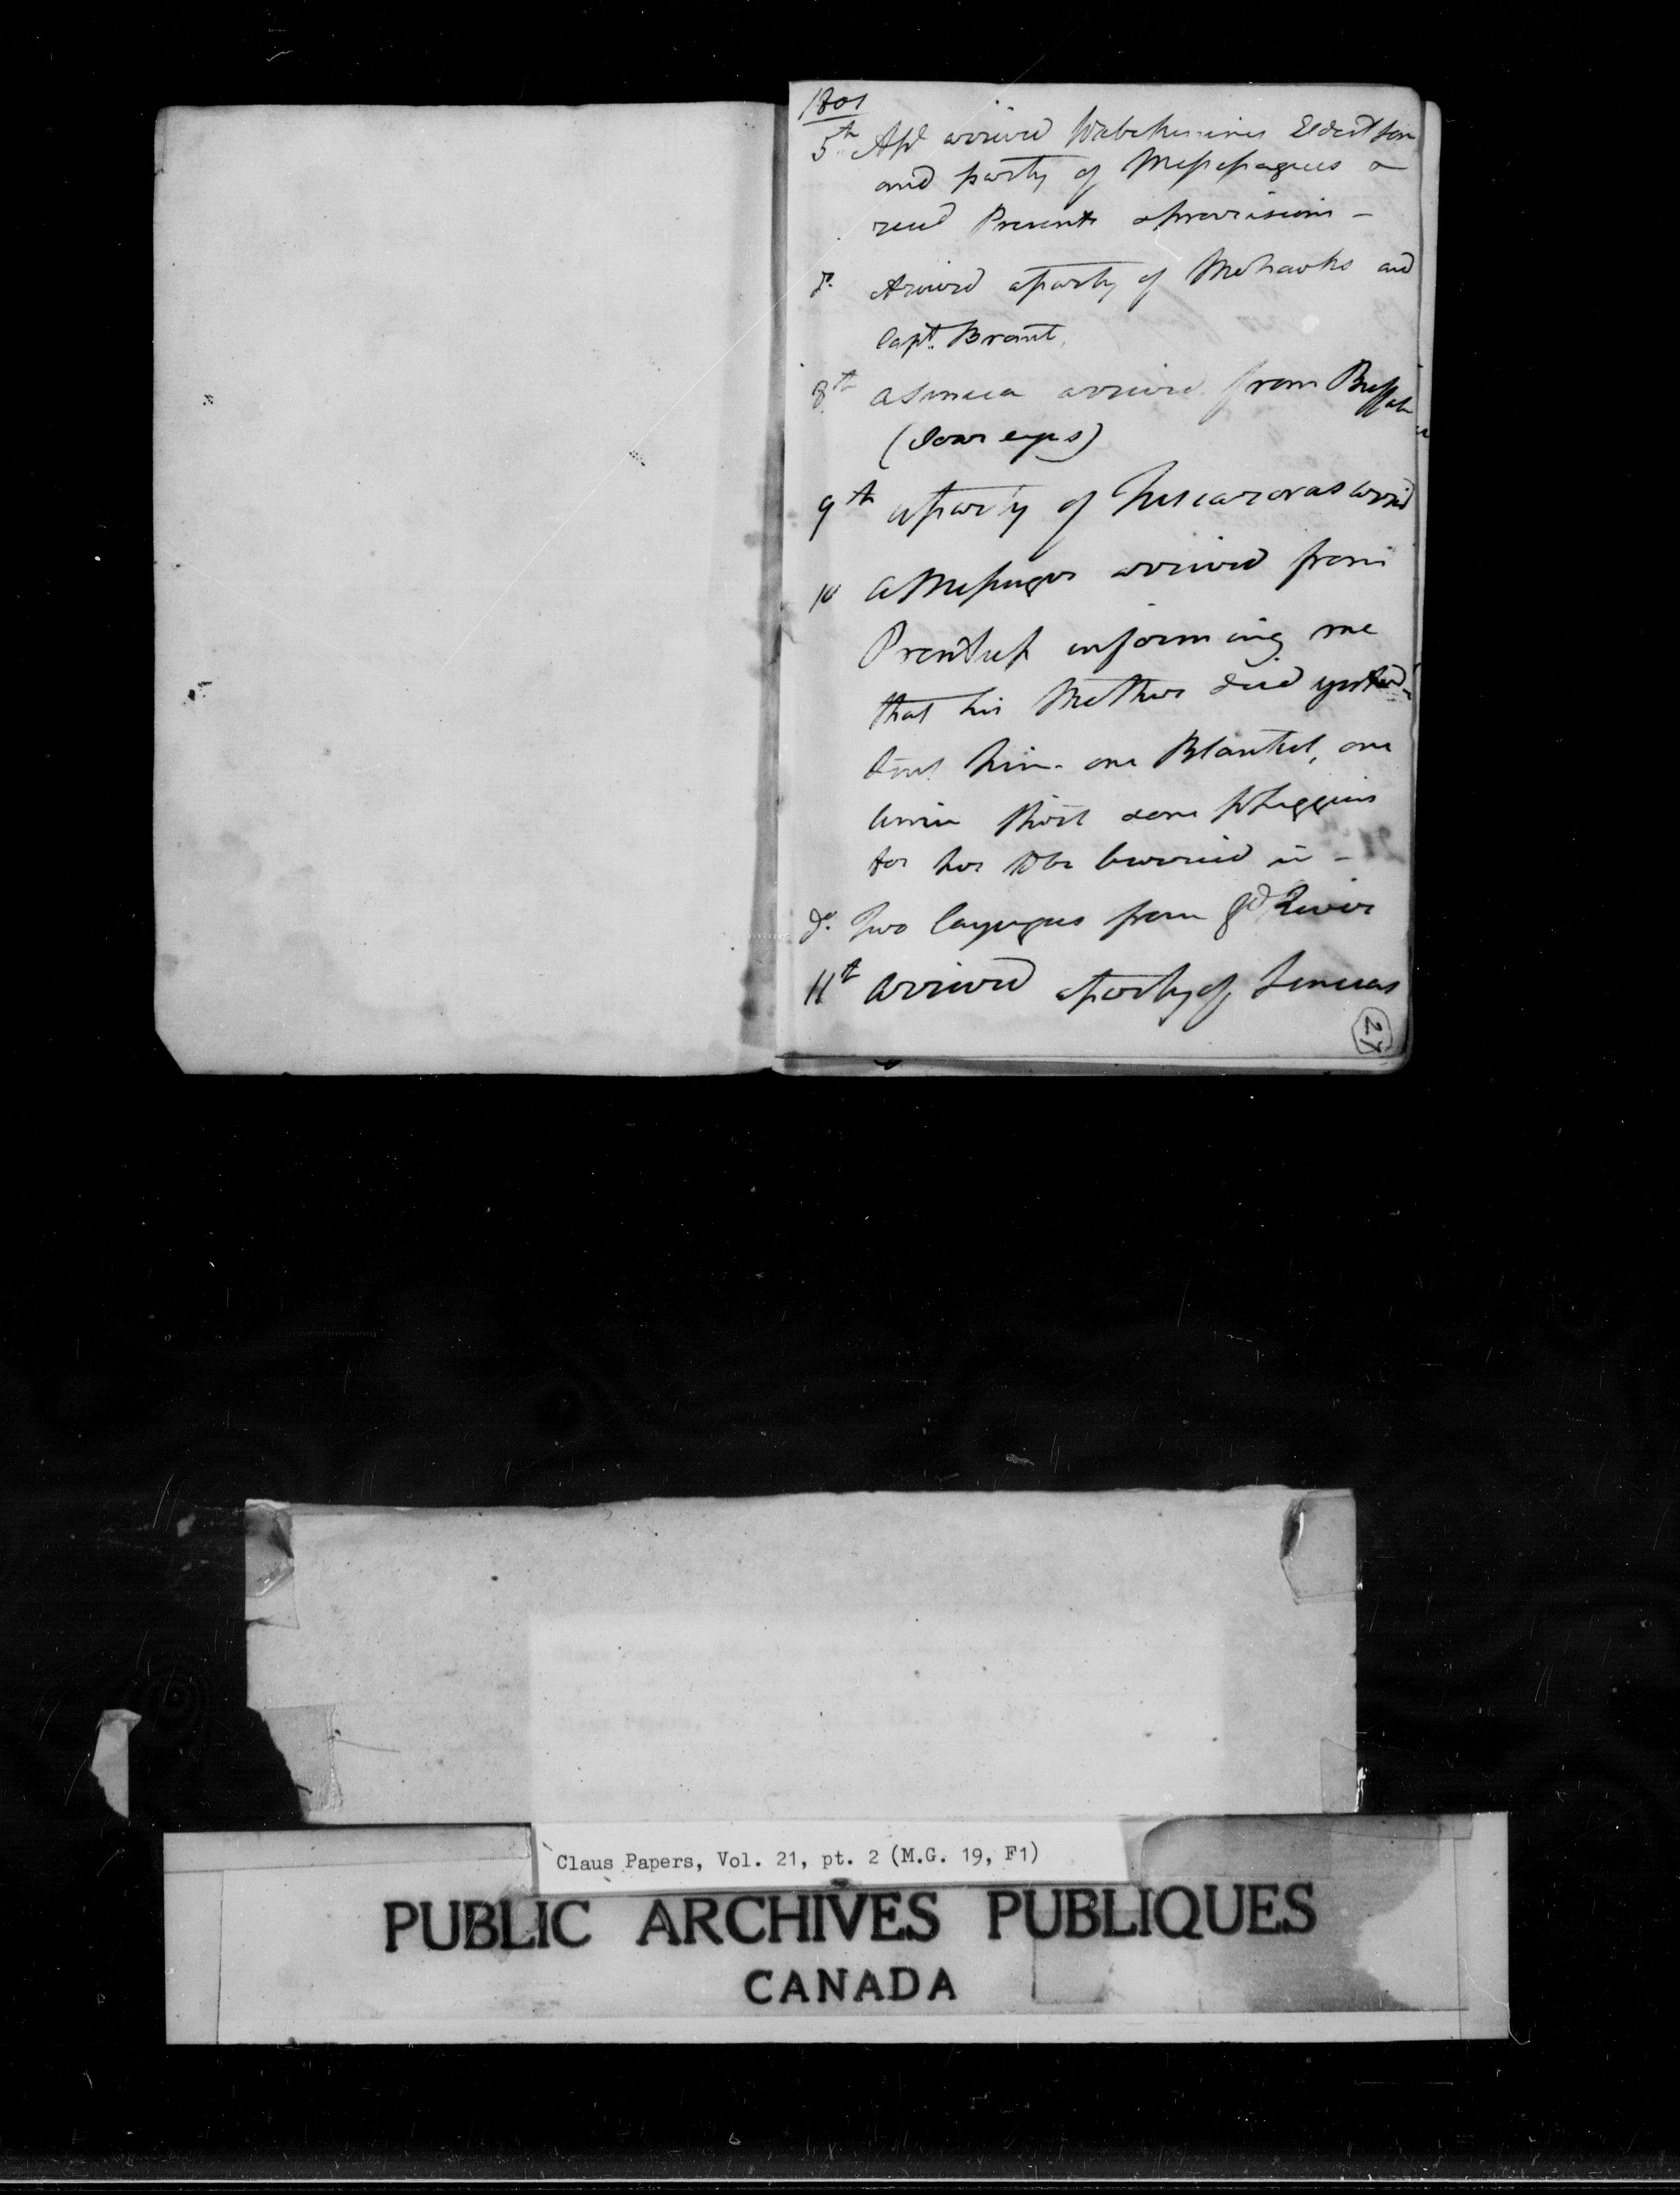 1801
5th Apl arrived Wabakenines Eldest son
and party of Messessagues &
recd Presents & provisions -
do. Arrived a party of Mohawks and
Capt. Brant.
8th a Seneca arrived from Buffalo
(Sour eyes)
9th a party of Tuscaroras arrid
10 a Messenger arrived from
informing me
that his Mother died yesterd-
Sent him one Blanket, one
Linnin Shirt & one pr Leggins
for her to be burried in -
do. Two Cayugas from Gd River
11th arrived a party of Senecas
27
Claus Papers, Vol. 21, pt. 2 (M.G. 19, F1)
PUBLIC ARCHIVES PUBLIQUES
CANADA